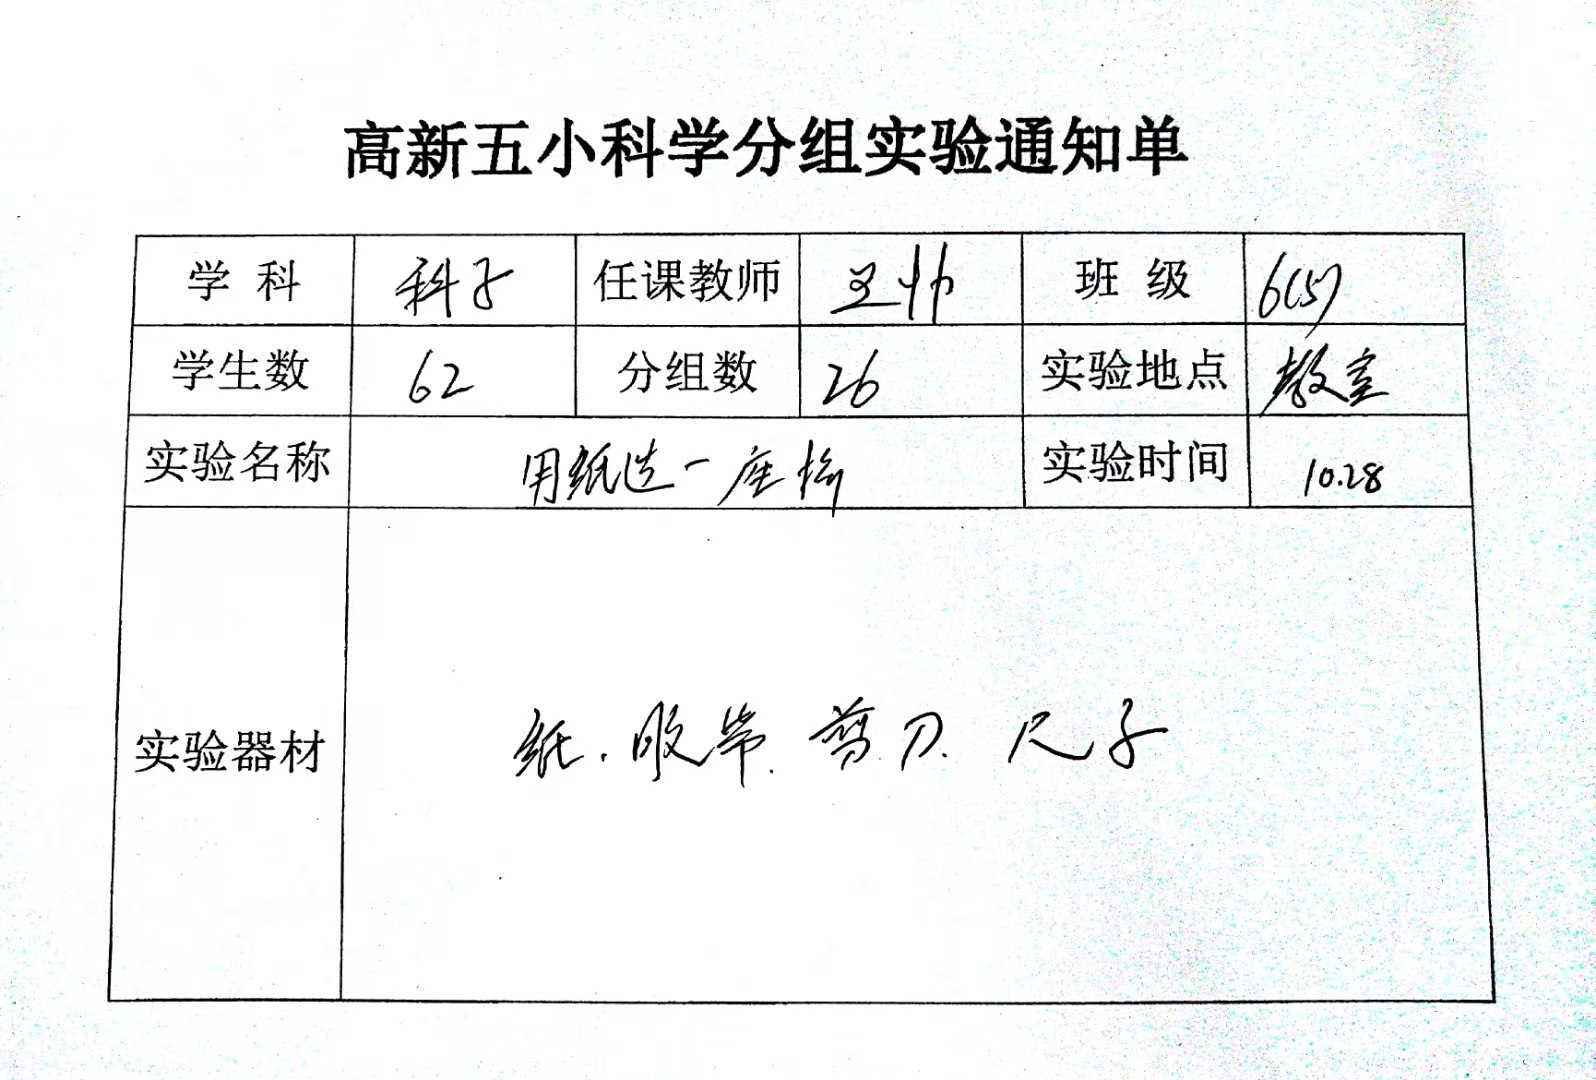 高新五小科学分组实验通知单
学 科 科学 任课教师 王帅 班 级 6(5)
学生数 62 分组数 26 实验地点 教室
实验名称 用纸造一座桥 实验时间 10.28
实验器材 纸、胶带、剪刀、尺子